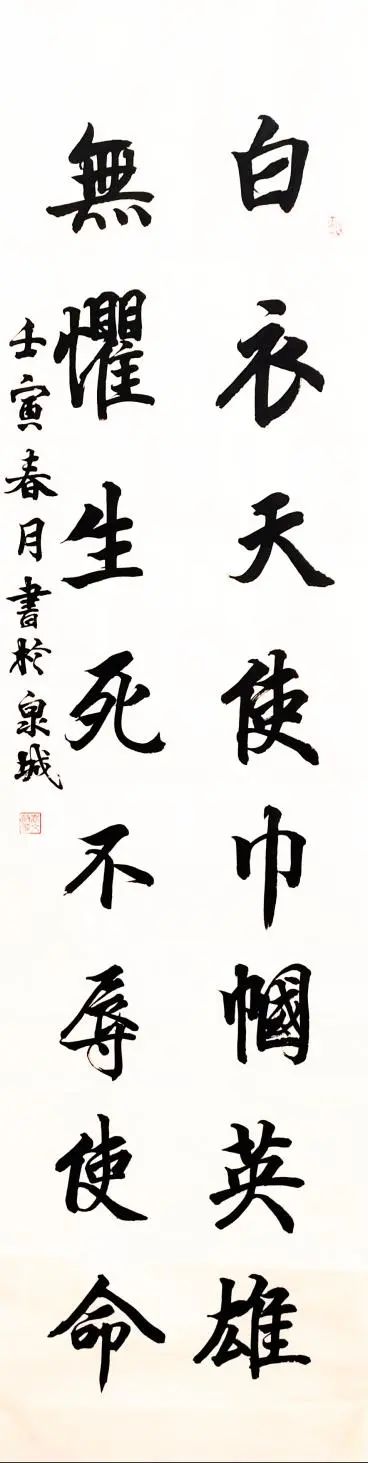 白衣天使巾帼英雄
無懼生死不辱使命
壬寅春月書於泉城